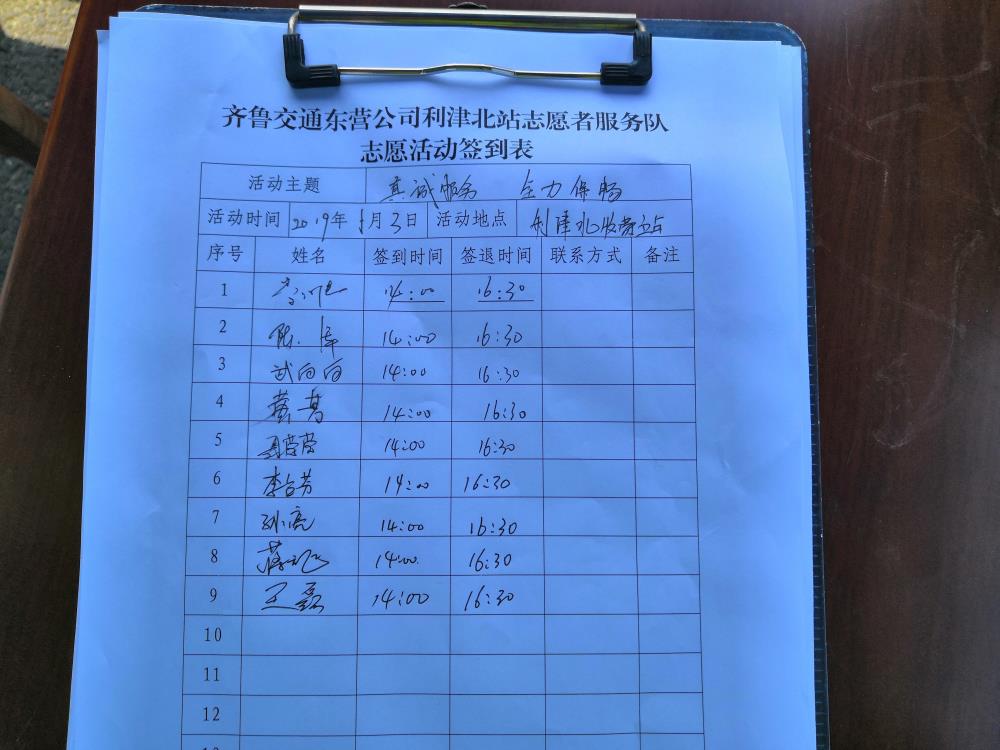 齐鲁交通东营公司利津北站志愿者服务队
志愿活动签到表
活动主题 真诚服务 全力保畅
活动时间 2019年 月3日 活动地点 利津北收费站
序号 姓名 签到时间 签退时间 联系方式 备注
1 14:00 16:30
2 陈 14:00 16:30
3 武向向 14:00 16:30
4 14:00 16:30
5 14:00 16:30
6 李台芳 14:00 16:30
7 孙亮 14:00 16:30
8 蒋飞 14:00 16:30
9 王磊 14:00 16:30
10
11
12